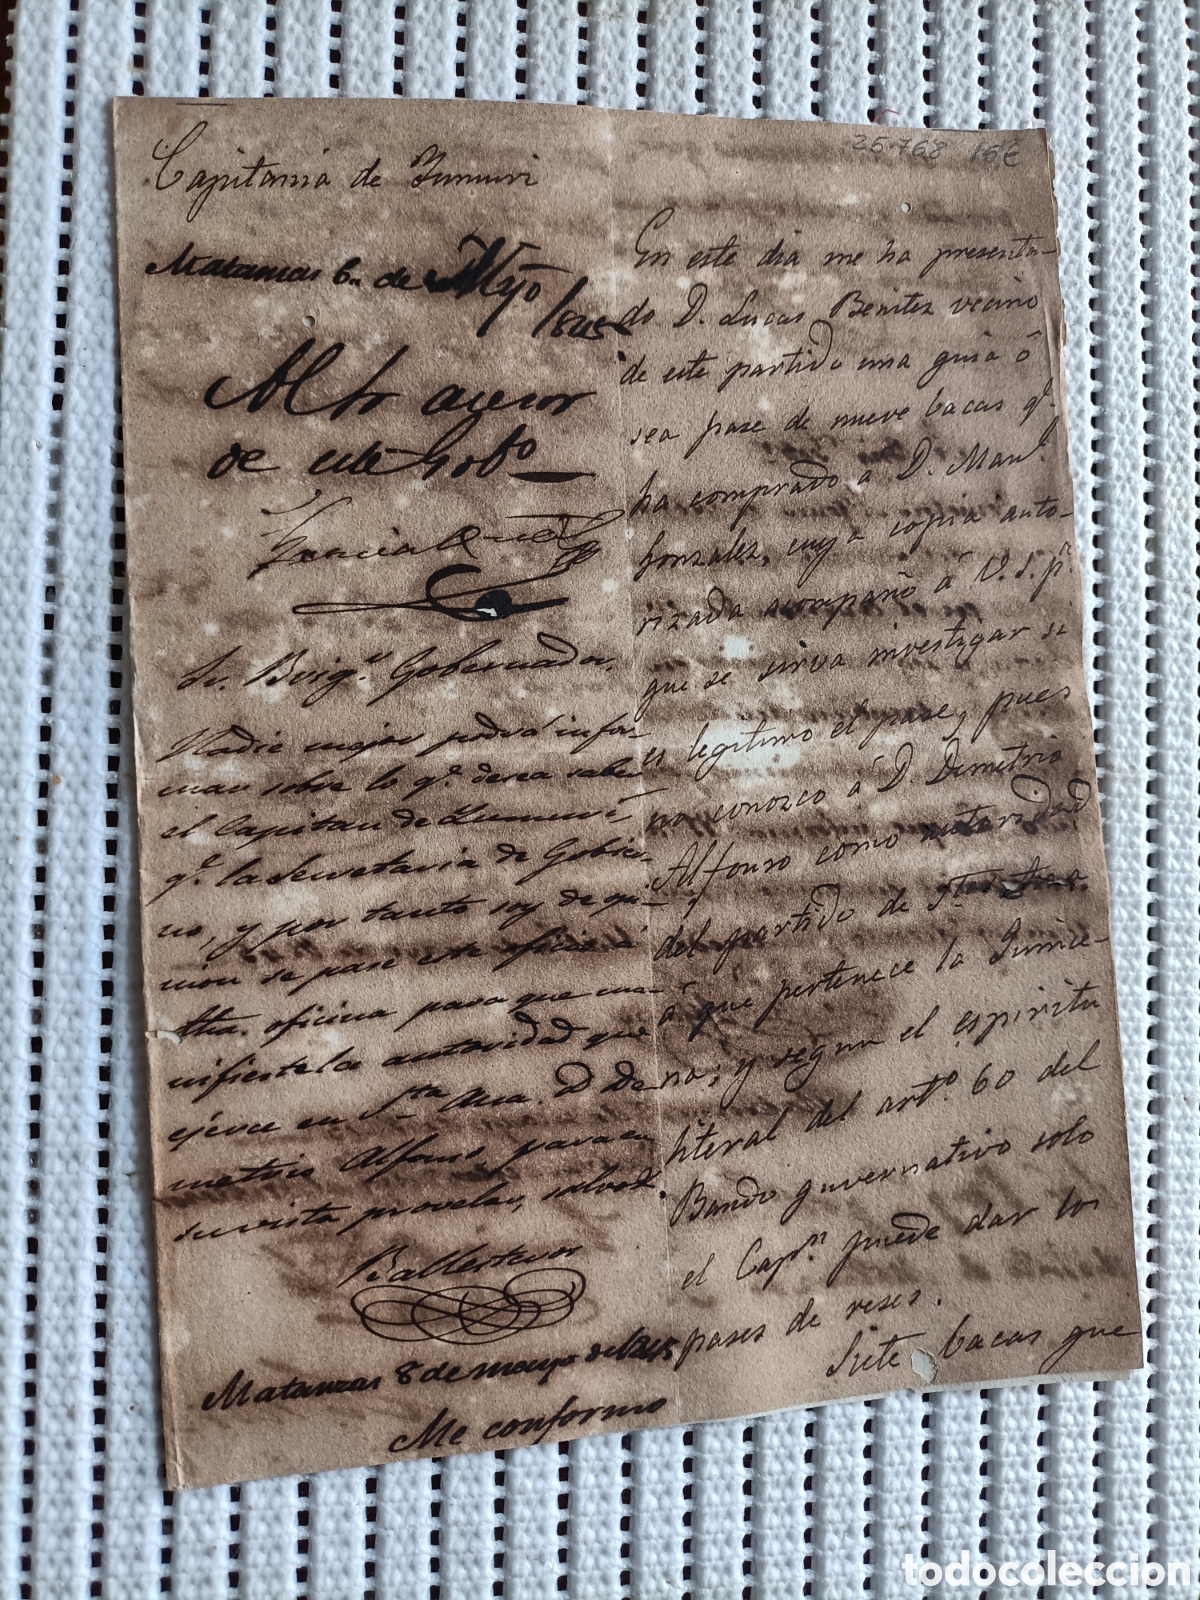 26.768 15€
Capitania de Yumuri
Matanzas 6 de Myo
/1845
Al Sr asesor
de este Gobno
Sr. Brigr. Gobernador.
Nadie mejor podrá infor-
mar sobre lo qe. desea saber
el Capitan de Yumurí
qe. la Secretaria de Gobier-
no, y por tanto soy de opi-
nion se pase este oficio á
dha. oficina para que ma-
nifieste la autoridad que
ejerce en Sta. Ana D. De-
metrio Alfonso para en
su vista proveer, salvo
Ballesteros
Matanzas 8 de mayo de 1845
Me conformo
En este dia me ha presenta-
do D. Lucas Benitez vecino
de este partido una guia ó
sea pase de nueve bacas qe.
ha comprado á D. Manl.
Gonzalez, cuya copia auto-
rizada acompaño á V. S. pa.
que se sirva investigar si
es legitimo el pase, pues
no conozco á D. Demetrio
Alfonso como autoridad
del partido de Sta. Ana
á que pertenece la
na; y segun el espiritu
literal del arto. 60 del
Bando guvernativo solo
el Capn. puede dar los
pases de reses.
Siete bacas que
todocoleccion